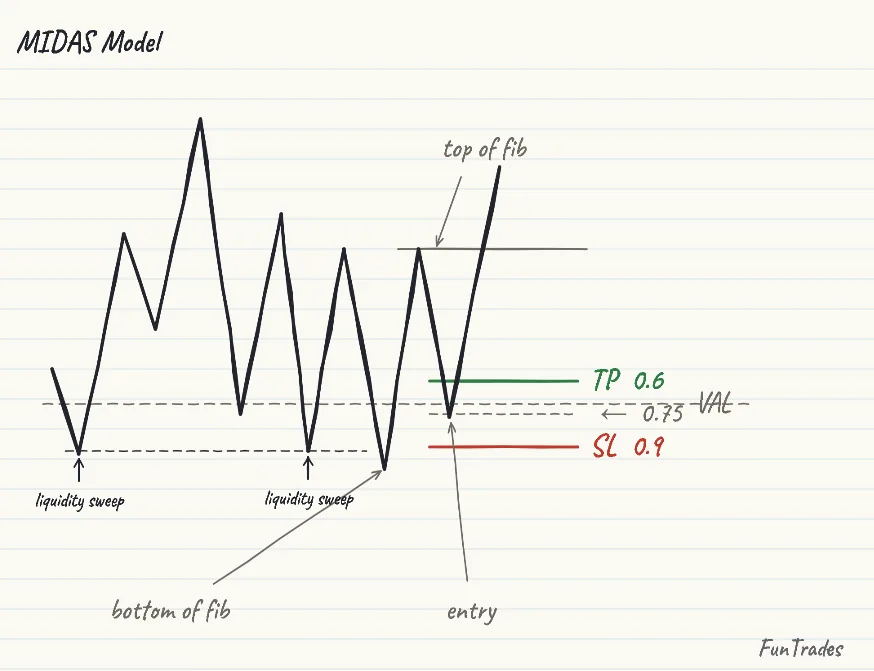 MIDAS Model
top of fib
TP 0.6
VAL
← 0.75
SL 0.9
liquidity sweep
liquidity sweep
bottom of fib
entry
FunTrades